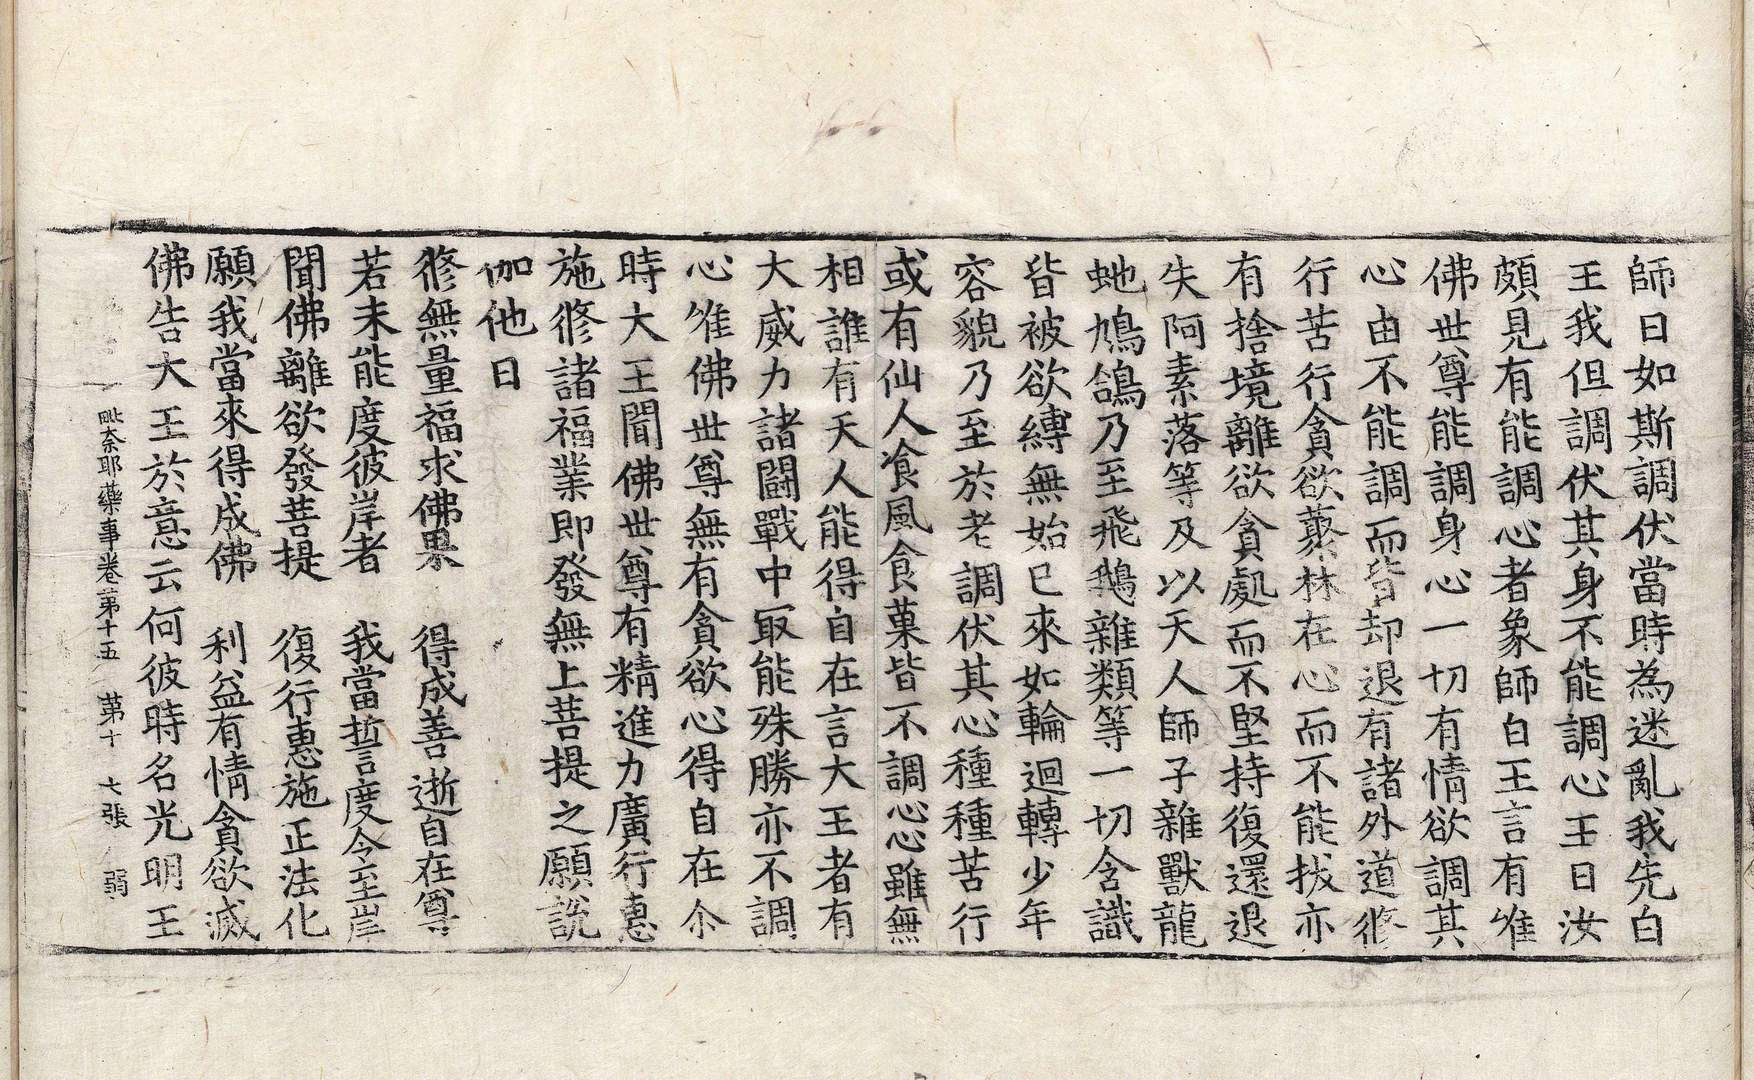 師曰如斯調伏當時為迷亂我先白
王我但調伏其身不能調心王曰汝
頗見有能調心者象師白王言有唯
佛世尊能調身心一切有情欲調其
心由不能調而皆却退有諸外道修
行苦行貪欲藂林在心而不能拔亦
有捨境離欲貪處而不堅持復還退
失阿素落等及以天人師子雜獸龍
虵鳩鴿乃至飛鵝雜類等一切含識
皆被欲縛無始已來如輪迴轉少年
容貌乃至於老調伏其心種種苦行
或有仙人飡風食菓皆不調心心雖無
相誰有天人能得自在言大王者有
大威力諸鬪戰中㝡能殊勝亦不調
心唯佛世尊無有貪欲心得自在尒
時大王聞佛世尊有精進力廣行惠
施修諸福業即發無上菩提之願說
伽他曰
修無量福求佛果　得成善逝自在尊
若未能度彼岸者　我當誓度令至岸
聞佛離欲發菩提　復行惠施正法化
願我當來得成佛　利益有情貪欲滅
佛告大王於意云何彼時名光明王
毗奈耶藥事卷第十五　第十七張　弱